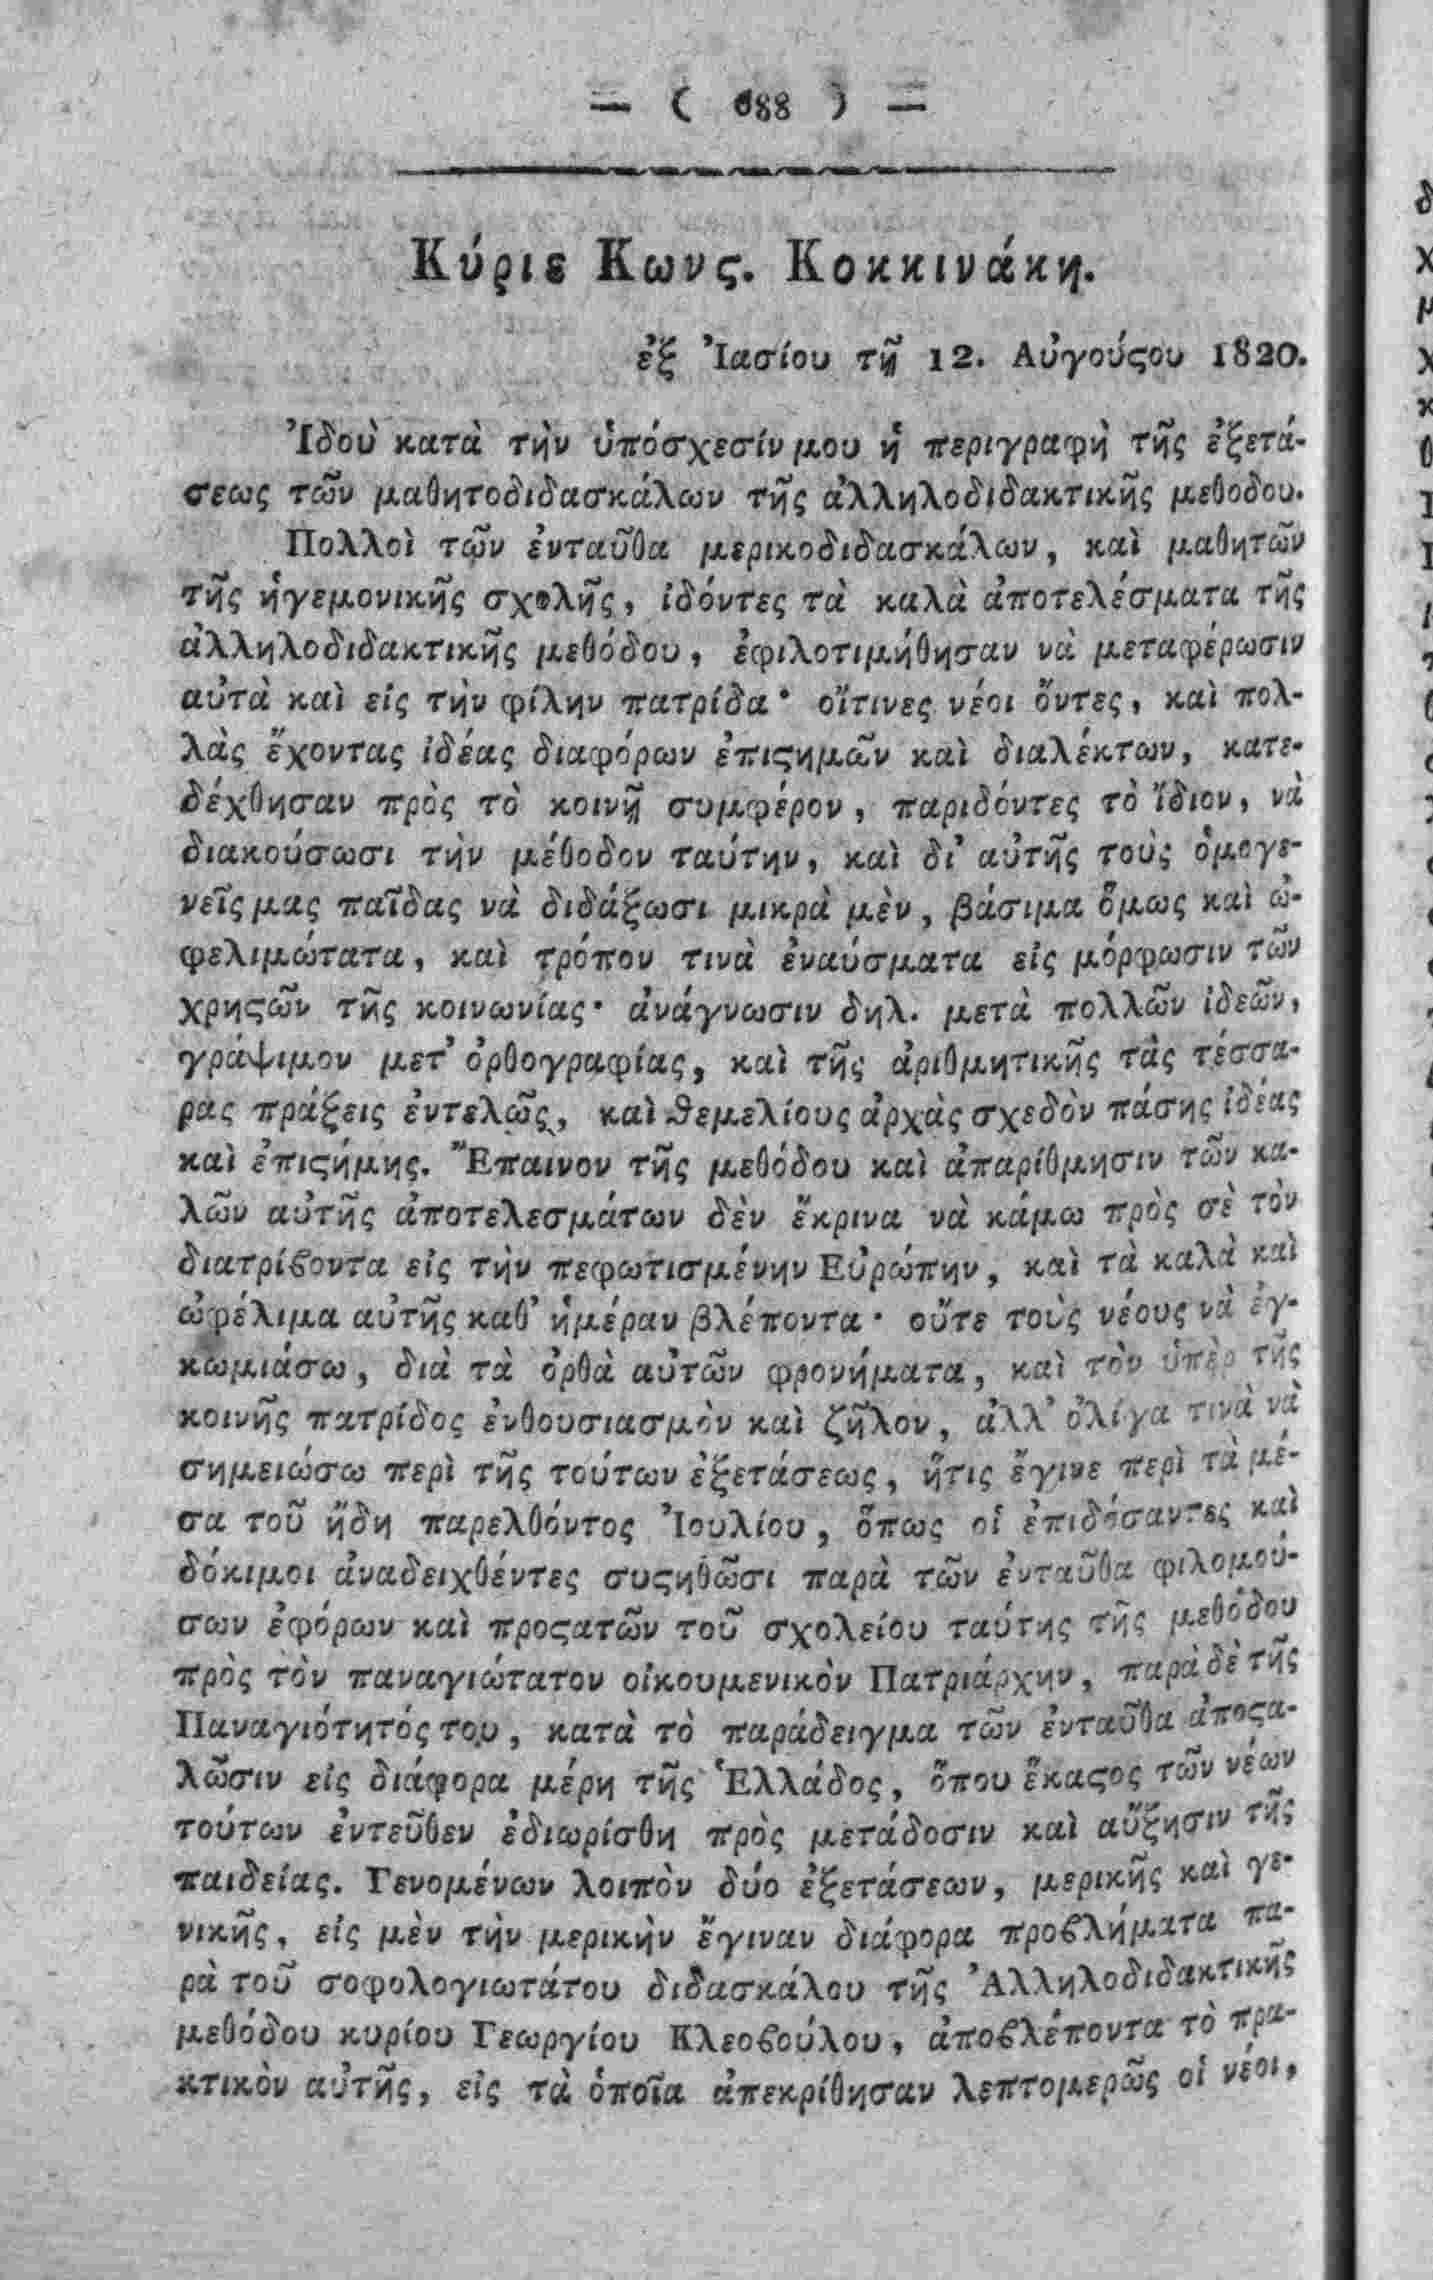 — ( 688 ) —
Κύριε Κωνς. Κοκκινάκη.
ἐξ Ἰασίου τῇ 12. Αὐγούςου 1820.
Ἰδοὺ κατὰ τὴν ὑπόσχεσίν μου ἡ περιγραφὴ τῆς ἐξετά-
σεως τῶν μαθητοδιδασκάλων τῆς ἀλληλοδιδακτικῆς μεθοδου.
Πολλοὶ τῶν ἐνταῦθα μερικοδιδασκάλων, καὶ μαθητῶν
τῆς ἡγεμονικῆς σχολῆς, ἰδόντες τὰ καλὰ ἀποτελέσματα τῆς
ἀλληλοδιδακτικῆς μεθόδου, ἐφιλοτιμήθησαν νὰ μεταφέρωσιν
αὐτὰ καὶ εἰς τὴν φίλην πατρίδα· οἵτινες νέοι ὄντες, καὶ πολ-
λὰς ἔχοντας ἰδέας διαφόρων ἐπιςημῶν καὶ διαλέκτων, κατε-
δέχθησαν πρὸς τὸ κοινῇ συμφέρον, παριδόντες τὸ ἴδιον, νὰ
διακούσωσι τὴν μέθοδον ταύτην, καὶ δι' αὐτῆς τοὺς ὁμογε-
νεῖς μας παῖδας νὰ διδάξωσι μικρὰ μὲν, βάσιμα ὅμως καὶ ὠ-
φελιμώτατα, καὶ τρόπον τινὰ ἐναύσματα εἰς μόρφωσιν τῶν
χρηςῶν τῆς κοινωνίας· ἀνάγνωσιν δηλ. μετὰ πολλῶν ἰδεῶν,
γράψιμον μετ' ὀρθογραφίας, καὶ τῆς ἀριθμητικῆς τὰς τέσσα-
ρας πράξεις ἐντελῶς, καὶ θεμελίους ἀρχὰς σχεδὸν πάσης ἰδέας
καὶ ἐπιςήμης. Ἔπαινον τῆς μεθόδου καὶ ἀπαρίθμησιν τῶν κα-
λῶν αὐτῆς ἀποτελεσμάτων δὲν ἔκρινα νὰ κάμω πρὸς σὲ τὸν
διατρίβοντα εἰς τὴν πεφωτισμένην Εὐρώπην, καὶ τὰ καλὰ καὶ
ὠφέλιμα αὐτῆς καθ' ἡμέραν βλέποντα· οὔτε τοὺς νέους νὰ ἐγ-
κωμιάσω, διὰ τὰ ὀρθὰ αὐτῶν φρονήματα, καὶ τὸν ὑπὲρ τῆς
κοινῆς πατρίδος ἐνθουσιασμὸν καὶ ζῆλον, ἀλλ' ὀλίγα τινὰ νὰ
σημειώσω περὶ τῆς τούτων ἐξετάσεως, ἥτις ἔγινε περὶ τὰ μέ-
σα τοῦ ἤδη παρελθόντος Ἰουλίου, ὅπως οἱ ἐπιδόσαντες καὶ
δόκιμοι ἀναδειχθέντες συςηθῶσι παρὰ τῶν ἐνταῦθα φιλομού-
σων ἐφόρων καὶ προςατῶν τοῦ σχολείου ταύτης τῆς μεθόδου
πρὸς τὸν παναγιώτατον οἰκουμενικὸν Πατριάρχην, παρὰ δὲ τῆς
Παναγιότητός του, κατὰ τὸ παράδειγμα τῶν ἐνταῦθα ἀποςα-
λῶσιν εἰς διάφορα μέρη τῆς Ἑλλάδος, ὅπου ἕκαςος τῶν νέων
τούτων ἐντεῦθεν ἐδιωρίσθη πρὸς μετάδοσιν καὶ αὔξησιν τῆς
παιδείας. Γενομένων λοιπὸν δύο ἐξετάσεων, μερικῆς καὶ γε-
νικῆς, εἰς μὲν τὴν μερικὴν ἔγιναν διάφορα προβλήματα πα-
ρὰ τοῦ σοφολογιωτάτου διδασκάλου τῆς Ἀλληλοδιδακτικῆς
μεθόδου κυρίου Γεωργίου Κλεοβούλου, ἀποβλέποντα τὸ πρα-
κτικὸν αὐτῆς, εἰς τὰ ὁποῖα ἀπεκρίθησαν λεπτομερῶς οἱ νέοι,